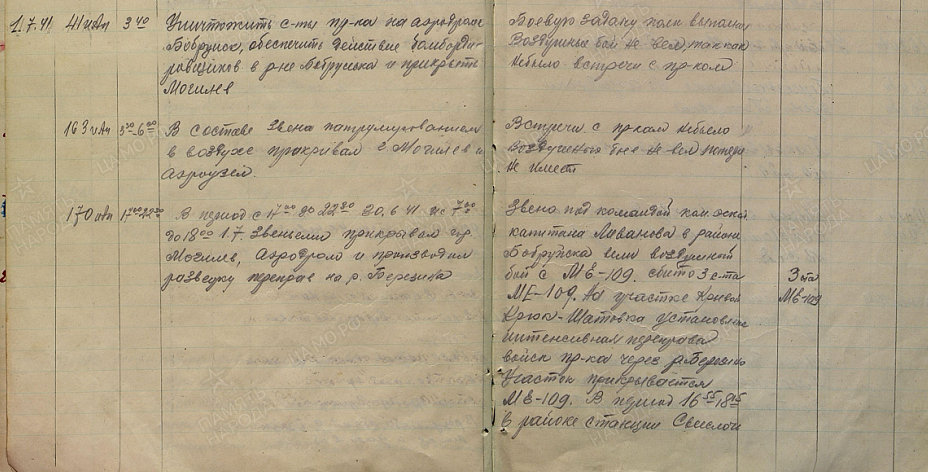 1.7.41 41 иАп 3 40 Уничтожить с-ты пр-ка на аэродроме
Бобруйск, обеспечить действие бомбарди-
ровщиков в р-не Бобруйска и прикрыть
Могилев
Боевую задачу полк выполнил
Воздушные бой не вел, так как
небыло встречи с пр-ком
163 иАп 5 30-6 00 В составе звена патрулированием
в воздухе прикривал г. Могилев и
аэроузел.
Встречи с пр-ком небыло
воздушный бое не вел потерь
не имеет
170 иАп В период с 17 00 до 22 20 30.6 41 и с 7 00
до 18 00 1.7. Звеньями прикрывал гор.
Могилев, Аэродром и производил
разведку переправ на р. Березина
Звено под командой ком. эскад
капитана Миванова в районе
Бобруйска вели воздушной
бой с МЕ-109. сбито 3 с-та
МЕ-109. На участке Кривой
Крюк-Шатовка установлено
интенсивная переправа
войск пр-ка через р. Березино
Участок прикрывается
МЕ-109. В период 16 55-18 15
в районе станции Свислочи
3 с-та
МЕ-109